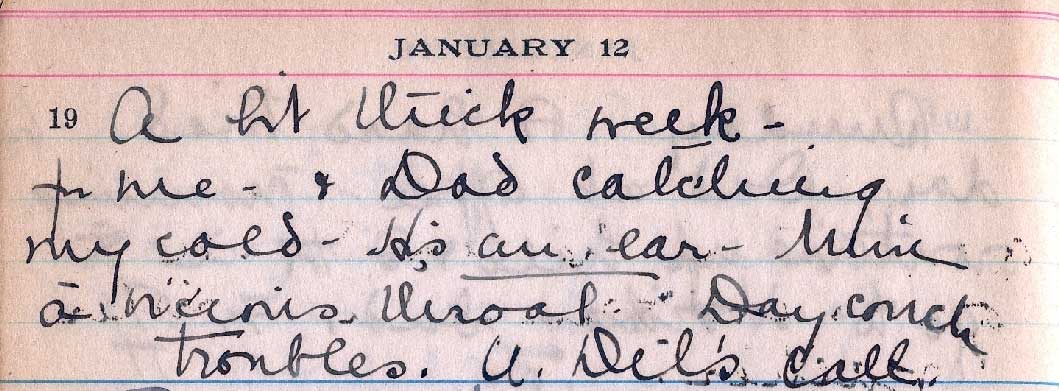 JANUARY 12
19 A bit thick week -
for me - & Dad catching
my cold - His an ear - Mine
a vicious throat - Day couch
troubles. call.